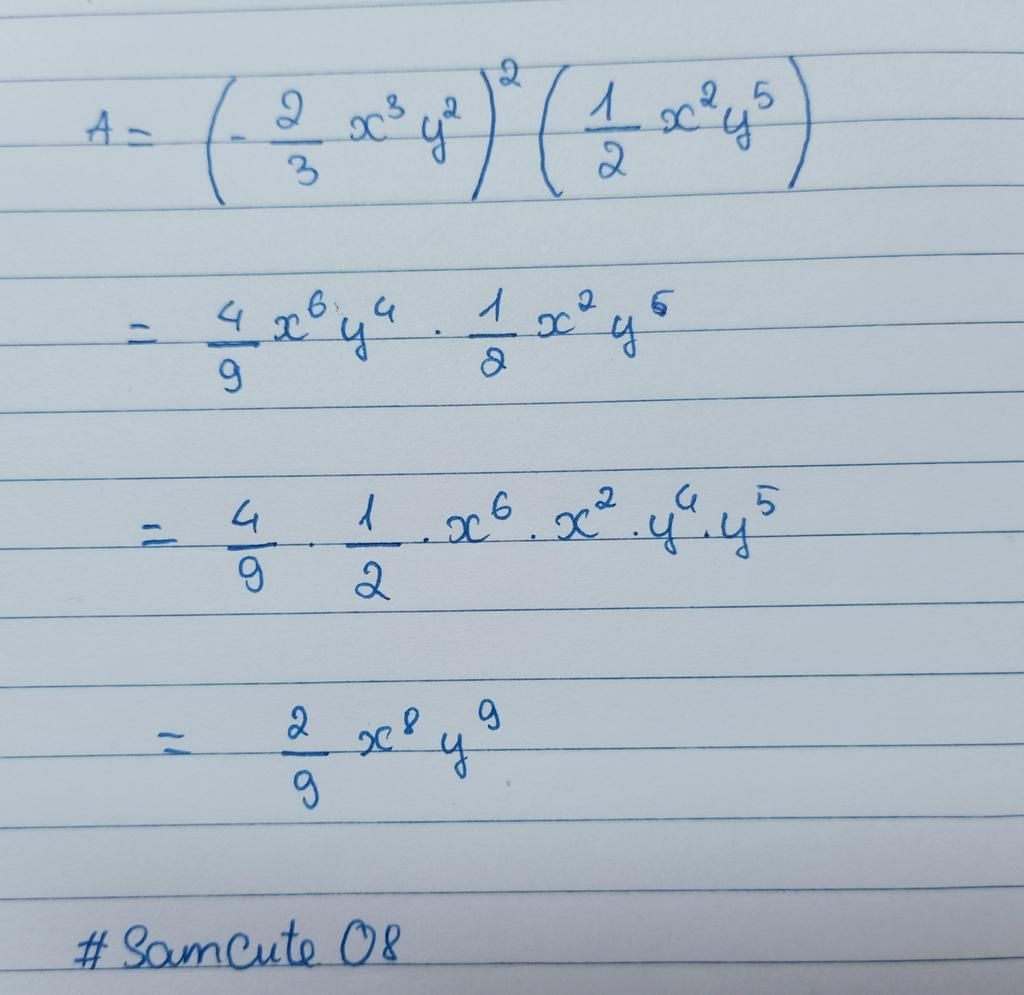 A = (-2/3 x³ y²)² (1/2 x² y⁵)
= 4/9 x⁶ y⁴ . 1/2 x² y⁵
= 4/9 . 1/2 . x⁶ . x² . y⁴ . y⁵
= 2/9 x⁸ y⁹
# SamCute 08